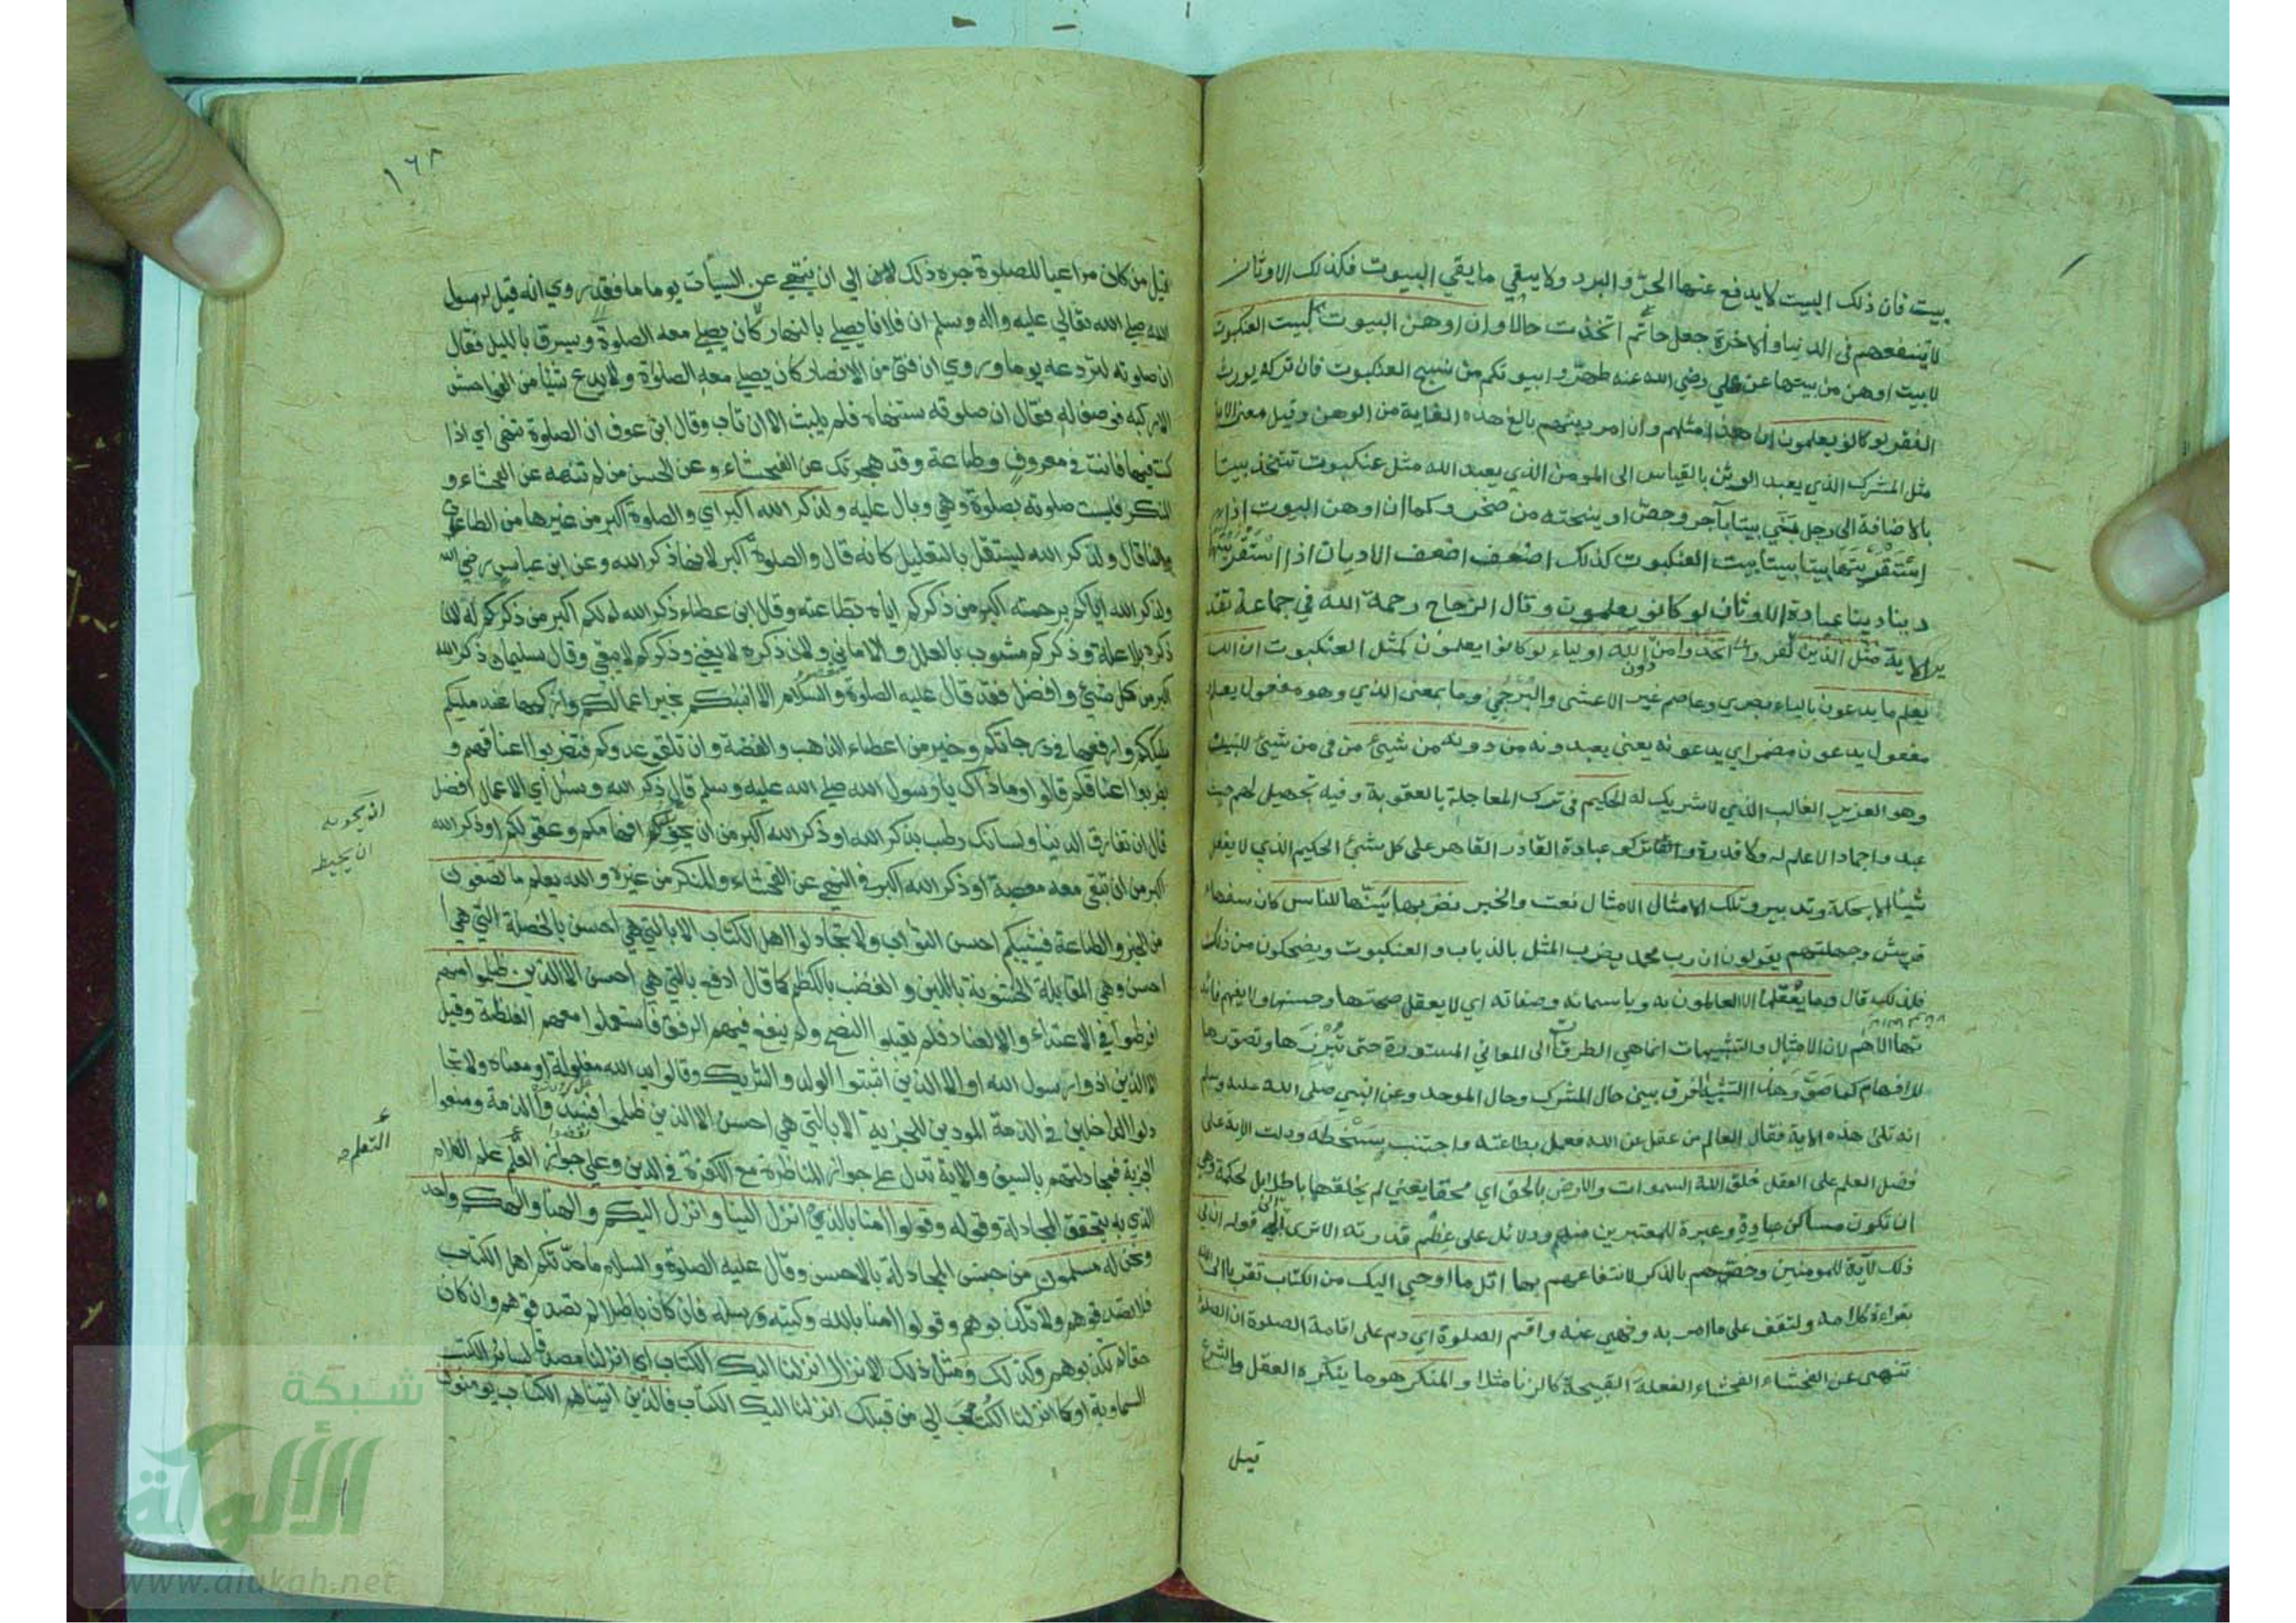 بيت فان ذلك البيت لا يدفع عنها الحرّ والبرد ولا يبقي ما يقي البيوت فكذلك الاوثان
لا ينفعهم في الدنيا والاخرة جعل حاتم اتخذت حالا وان اوهن البيوت لبيت العنكبوت
لا بيت اوهن من بيتها عن علي رضي الله عنه طهروا بيوتكم من نسج العنكبوت فان تركه يورث
الفقر لو كانوا يعلمون ان هذا مثلهم وان امر دينهم بالغ هذه الغاية من الوهن وقيل معنى الاية
مثل المشرك الذي يعبد الوثن بالقياس الى المومن الذي يعبد الله مثل عنكبوت تتخذ بيتا
بالاضافة الى رجل يبني بيتا بآجر وجصّ او ينحته من صخر وكما ان اوهن البيوت اذا
استقريتها بيتا بيتا بيت العنكبوت كذلك اضعف الاديان اذا استقريتها
دينا دينا عبادة الاوثان لو كانوا يعلمون وقال الزجاج رحمة الله في جماعة تقد
ير الاية مثل الذين اتخذوا من دون الله اولياء لو كانوا يعلمون كمثل العنكبوت ان الله
يعلم ما يدعون بالياء بصري وعاصم غير الاعشى والبرجمي وما بمعنى الذي وهو مفعول يعلم
مفعول يدعون مضمر اي يدعونه يعني يعبدونه من دونه من شيئ من في من شيئ للتبيين
وهو العزيز الغالب الذي لا شريك له الحكيم في ترك المعاجلة بالعقوبة وفيه تجهيل لهم حيث
عبدوا جمادا لا علم له ولا قدرة وتركوا عبادة القادر القاهر على كل شيئ الحكيم الذي لا يفعل
شيئا الا بحكمة وتدبير وتلك الامثال الامثال نعت والخبر نضربها نبينها للناس كان سفهاء
قريش وجهلتهم يقولون ان رب محمد يضرب المثل بالذباب والعنكبوت ويضحكون من ذلك
فلذلك قال وما يعقلها الا العالمون به وباسمائه وصفاته اي لا يعقل صحتها وحسنها ولا يفهم فائد
تها الا هم لان الامثال والتشبيهات انما هي الطرق الى المعاني المستورة حتى تبرزها وتصورها
للافهام كما صوّر هذا التشبيه الفرق بين حال المشرك وحال الموحد وعن النبي صلى الله عليه وسلم
انه تلى هذه الاية فقال العالم من عقل عن الله فعمل بطاعته واجتنب سخطه ودلت الاية على
فضل العلم على العقل خلق الله السموات والارض بالحق اي محقا يعني لم يخلقها باطلا بل لحكمة وهي
ان تكون مساكن عباده وعبرة للمعتبرين منهم ودلائل على عظم قدرته الا ترى الى قوله ان في
ذلك لآية للمومنين وخصّهم بالذكر لانتفاعهم بها اتل ما اوحي اليك من الكتاب تقربا الى الله
بقراءة كلامه ولتقف على ما امر به ونهى عنه واقم الصلوة اي دم على اقامة الصلوة ان الصلوة
تنهى عن الفحشاء الفحشاء الفعلة القبيحة كالزنا مثلا والمنكر هو ما ينكره العقل والشرع
قيل
١٦٨
قيل من كان مراعيا للصلوة جره ذلك الى ان ينتهي عن السيأت يوما ما فقد روي انه قيل لرسول
الله صلى الله تعالى عليه واله وسلم ان فلانا يصلي بالنهار ويسرق بالليل فقال
ان صلوته لتردعه يوما وروي ان فتى من الانصار كان يصلي معه الصلوة ولا يدع شيئا من الفواحش
الا ركبه فوصف له فقال ان صلوته ستنهاه فلم يلبث الا ان تاب وقال ابن عوف ان الصلوة تنهى اي اذا
كنت فيها فانت في معروف وطاعة وقد حجزتك عن الفحشاء وعن الحسن من لم تنهه عن الفحشاء و
المنكر فليست صلوته بصلوة وهي وبال عليه ولذكر الله اكبر اي والصلوة اكبر من غيرها من الطاعات
وانما قال ولذكر الله ليستقل بالتعليل كانه قال والصلوة اكبر لانها ذكر الله وعن ابن عباس رضي الله
ولذكر الله اياكم برحمته اكبر من ذكركم اياه بطاعته وقال ابن عطاء ذكر الله لكم اكبر من ذكركم له لان
ذكره بلا علة وذكركم مشوب بالعلل والاماني ولان ذكره لا يفنى وذكركم لا يبقى وقال سليمان ذكر الله
اكبر من كل شيئ وافضل فقد قال عليه الصلوة والسلام الا انبئكم بخير اعمالكم وازكيها عند مليككم
وارفعها في درجاتكم وخير من اعطاء الذهب والفضة وان تلقو عدوكم فتضربوا اعناقهم و
يضربوا اعناقكم قالوا وما ذاك يا رسول الله صلى الله عليه وسلم قال ذكر الله وسئل اي الاعمال افضل
قال ان تفارق الدنيا ولسانك رطب بذكر الله او ذكر الله اكبر من ان افهامكم وعقولكم او ذكر الله
اكبر من ان تبقى معه معصية او ذكر الله اكبر في النهي عن الفحشاء والمنكر من غيره والله يعلم ما تصنعون
من الخير والطاعة فيثيبكم احسن الثواب ولا تجادلوا اهل الكتاب الا بالتي هي احسن بالخصلة التي هي
احسن وهي المقابلة الخشونة باللين والغضب بالكظم كما قال ادفع بالتي هي احسن الا الذين ظلموا منهم
افرطوا في الاعتداء والعناد فلم يقبلوا النصح ولم ينفع فيهم الرفق فاستعملوا معهم الغلظة وقيل
الا الذين اذوا رسول الله او الا الذين اثبتوا الولد والشريك وقالوا يد الله مغلولة او معناه ولا تجا
دلوا الداخلين في الذمة المودين للجزية الا بالتي هي احسن الا الذين ظلموا فنبذوا الذمة ومنعوا
الجزية فمجادلتهم بالسيف والاية تدل على جواز المناظرة مع الكفرة في الدين وعلى جواز علم الكلام
الذي به يتحقق المجادلة وقوله وقولوا امنا بالذي انزل الينا وانزل اليكم والهنا والهكم واحد
ونحن له مسلمون من جنس المجادلة بالاحسن وقال عليه الصلوة والسلام ما حدثكم اهل الكتاب
فلا تصدقوهم ولا تكذبوهم وقولوا امنا بالله وكتبه ورسله فان كان باطلا لم تصدقوهم وان كان
حقا لم تكذبوهم وكذلك ومثل ذلك الانزال انزلنا اليك الكتاب اي انزلنا مصدقا لسائر الكتب
السماوية او كما انزلنا الكتب الى من قبلك انزلنا اليك الكتاب فالذين اتيناهم الكتاب يومنون
ان تحويه
ان يحيط
التعلم
شبكة
الألوكة
www.alukah.net